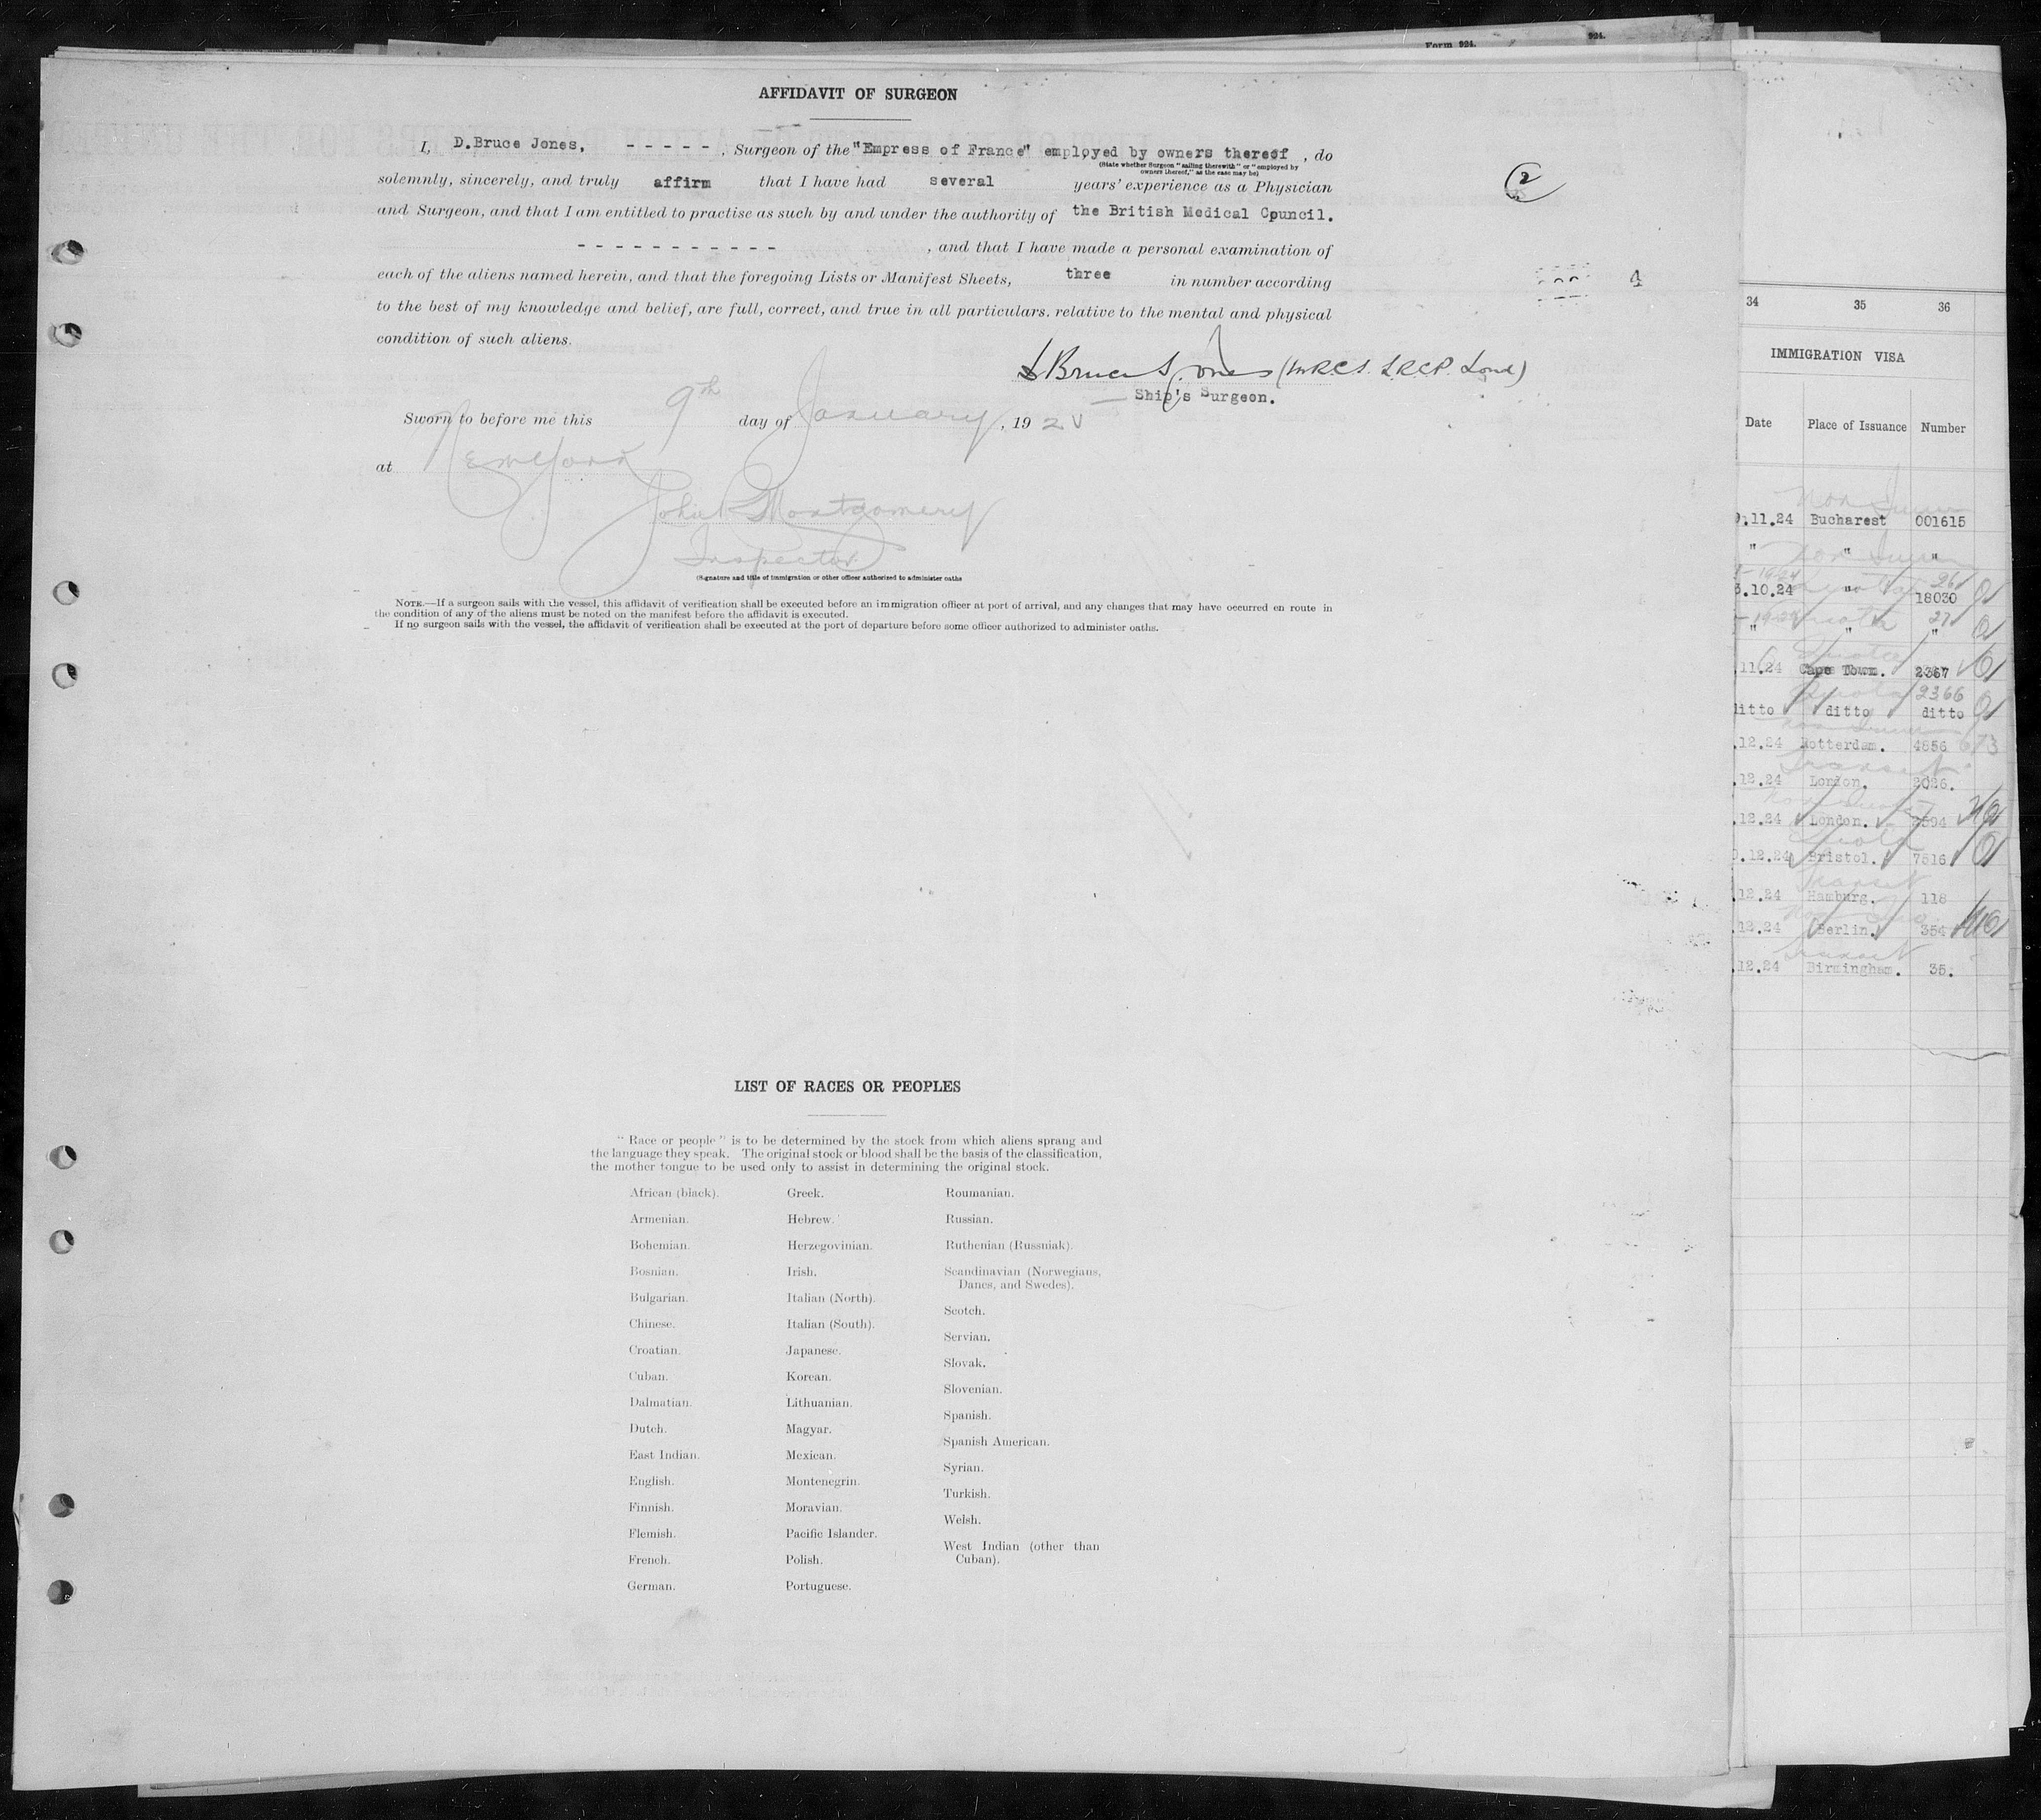 Form 924.
924.
AFFIDAVIT OF SURGEON
I, D.Bruce Jones, - - - - - , Surgeon of the "Empress of France" employed by owners thereof , do
(State whether Surgeon "sailing therewith" or "employed by
owners thereof," as the case may be)
solemnly, sincerely, and truly affirm that I have had several years' experience as a Physician
and Surgeon, and that I am entitled to practise as such by and under the authority of the British Medical Council.
- - - - - - - - - - - , and that I have made a personal examination of
each of the aliens named herein, and that the foregoing Lists or Manifest Sheets, three in number according
to the best of my knowledge and belief, are full, correct, and true in all particulars. relative to the mental and physical
condition of such aliens.
2
4
D Bruce Jones (MRCS. LRCP. Lond)
Ship's Surgeon.
Sworn to before me this 9th day of January, 192
at New York
John Montgomery
Inspector
(Signature and title of immigration or other officer authorized to administer oaths
NOTE.—If a surgeon sails with the vessel, this affidavit of verification shall be executed before an immigration officer at port of arrival, and any changes that may have occurred en route in
the condition of any of the aliens must be noted on the manifest before the affidavit is executed.
If no surgeon sails with the vessel, the affidavit of verification shall be executed at the port of departure before some officer authorized to administer oaths.
LIST OF RACES OR PEOPLES
"Race or people" is to be determined by the stock from which aliens sprang and
the language they speak. The original stock or blood shall be the basis of the classification,
the mother tongue to be used only to assist in determining the original stock.
African (black).
Armenian.
Bohemian.
Bosnian.
Bulgarian.
Chinese.
Croatian.
Cuban.
Dalmatian.
Dutch.
East Indian.
English.
Finnish.
Flemish.
French.
German.
Greek.
Hebrew.
Herzegovinian.
Irish.
Italian (North).
Italian (South).
Japanese.
Korean.
Lithuanian.
Magyar.
Mexican.
Montenegrin.
Moravian.
Pacific Islander.
Polish.
Portuguese.
Roumanian.
Russian.
Ruthenian (Russniak).
Scandinavian (Norwegians,
Danes, and Swedes).
Scotch.
Servian.
Slovak.
Slovenian.
Spanish.
Spanish American.
Syrian.
Turkish.
Welsh.
West Indian (other than
Cuban).
34 35 36
IMMIGRATION VISA
Date Place of Issuance Number
.11.24 Bucharest 001615
" " "
.10.24 " 18030
26
27
" " "
Quota
11.24 Cape Town. 2367
Quota 2366
ditto ditto ditto
.12.24 Rotterdam. 4856
Transit
.12.24 London. 2026.
.12.24 London. 2594
Quota
.12.24 Bristol. 7516
Transit
.12.24 Hamburg. 118
.12.24 Berlin. 354
Transit
.12.24 Birmingham. 35.